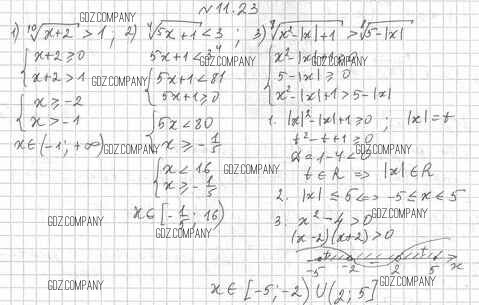 №11.23
1) ¹⁰√(x+2) > 1 ; 2) ⁴√(5x+1) < 3 ; 3) ⁸√(x²-|x|+1) > ⁸√(5-|x|)
{ x+2≥0
x+2>1
{ x≥-2
x>-1
x∈(-1;+∞)
5x+1<3⁴
{ 5x+1<81
5x+1≥0
{ 5x<80
x≥-1/5
{ x<16
x≥-1/5
x∈[-1/5;16)
{ x²-|x|+1≥0
5-|x|≥0
x²-|x|+1>5-|x|
1. |x|²-|x|+1≥0 ; |x|=t
t²-t+1≥0
D=1-4<0
t∈R ⇒ |x|∈R
2. |x|≤5 ⇔ -5≤x≤5
3. x²-4>0
(x-2)(x+2)>0
-5 -2 2 5 x
x∈[-5;-2)∪(2;5]
GDZ.COMPANY
GDZ.COMPANY
GDZ.COMPANY
GDZ.COMPANY
GDZ.COMPANY
GDZ.COMPANY
GDZ.COMPANY
GDZ.COMPANY
GDZ.COMPANY
GDZ.COMPANY
GDZ.COMPANY
GDZ.COMPANY
GDZ.COMPANY